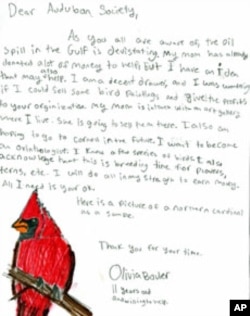 Dear Audubon Society,
As you all are aware of, the oil
spill in the Gulf is devistating. My mom has already
donated alot of money to help, but I have an idea
that may also help. I am a decent drawer, and I was wondering
if I could sell some bird paintings and give the profits
to your orginization. My mom is in
I live. She is going to sep them there. I also am
hoping to go to Cornell in the future. I want to become
an ornitholigist. I know a few species of birds. I also
acknowledge that this is breeding time for plovers,
terns, etc. I will do all in my strength to earn money.
All I need is your ok.
Here is a picture of a northern cardinal
as a sample.
Thank you for your time.
Olivia Bouler
11 years old
and willing to help.
AP